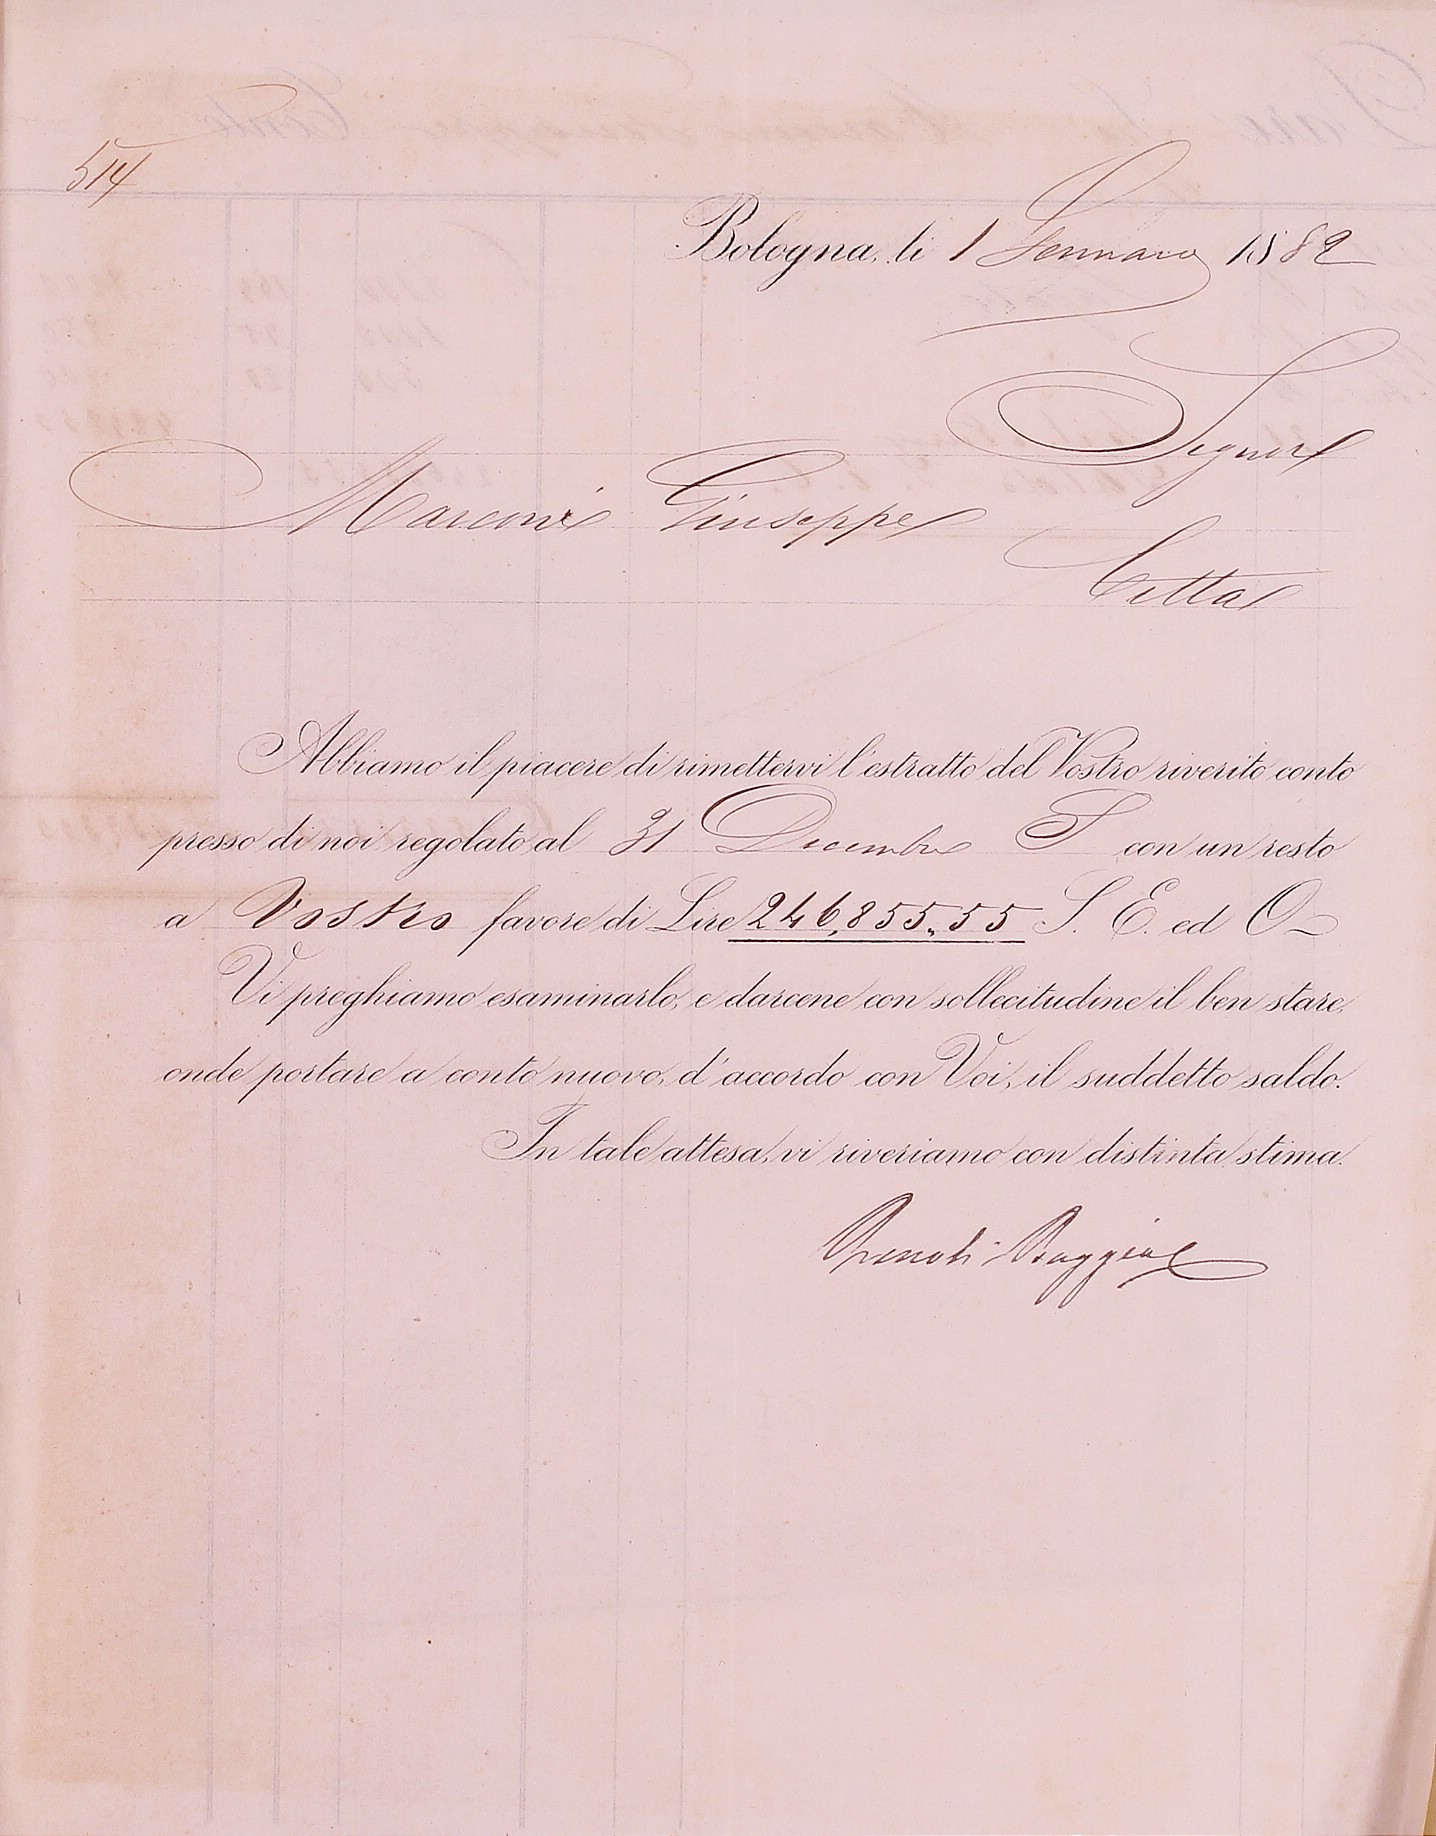 514
Bologna, li 1 Gennaro 1882
Signor
Marconi Giuseppe
Città
Abbiamo il piacere di rimettervi l'estratto del Vostro riverito conto
presso di noi regolato al 31 Decembre con un resto
a Vostro favore di Lire 246,855,,55 S. E. ed O
Vi preghiamo esaminarlo, e darcene con sollecitudine il ben stare,
onde portare a conto nuovo, d'accordo con Voi, il suddetto saldo.
In tale attesa, vi riveriamo con distinta stima.